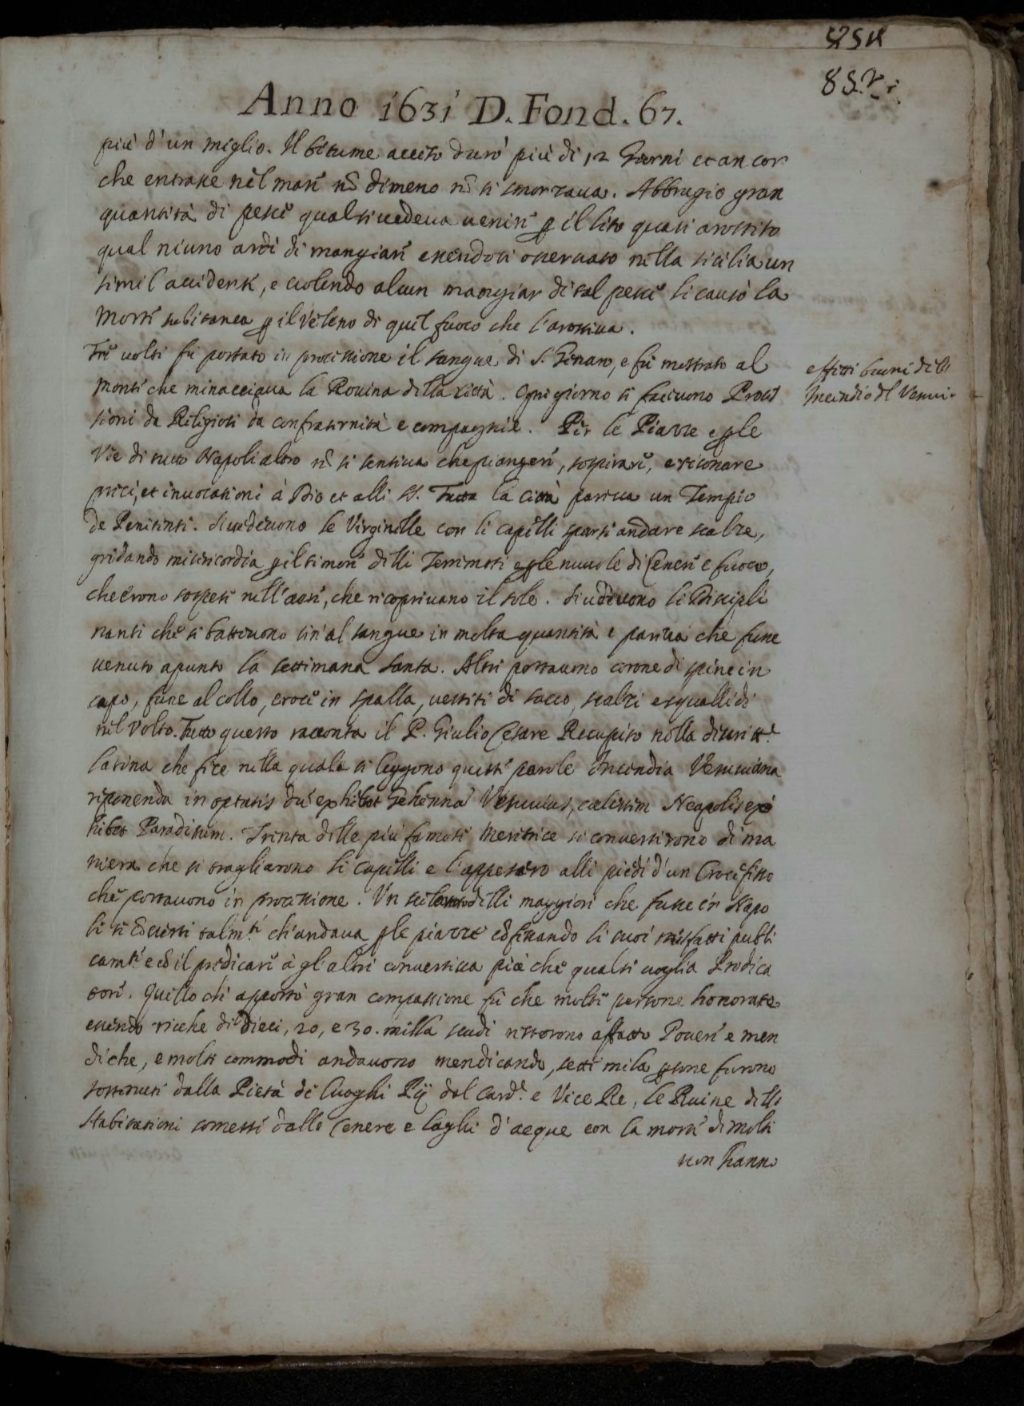 852
Anno 1631 D. Fond. 67.
più d'un miglio. Il bitume acceso durò più di 12 Giorni et ancor
che entrasse nel mare nõ dimeno nõ si smorzava. Abbrugiò gran
quantità di pesce qual si vedeva venire ꝑ il lito quasi arostito
qual niuno ardì di mangiare essendosi osservato nella sicilia un
simil accidente, e volendo alcun mangiar di tal pesce li causò la
Morte subitanea ꝑ il veleno di quel fuoco che l'arostiva.
Tre volte fù portato in processione il sangue di S. Genaro, e fù mostrato al
monte che minacciava la Rovina della città. Ogni giorno si facevono Proces
sioni da Religiosi da confraternità e compagnie. Per le Piazze e ꝑ le
Vie di tutto Napoli altro nõ si sentiva che piangere, sospirare, e risonare
preci, et invocationi à Dio et alli SS. Tutta la città pareva un Tempio
de Penitenti. Si vedevono le Virginelle con li capelli sparsi andare scalze,
gridando misericordia ꝑ il timore delli Terremoti e ꝑ le nuvole di Cenere e fuoco,
che erono sospese nell'aere, che ricoprivano il sole. Si vedevono li Discipli
nanti che si battevono sin'al sangue in molta quantità e pareva che fusse
venuto apunto la settimana santa. Altri portavono corone di spine in
capo, fune al collo, croce in spalla, vestiti di sacco, scalzi e squallidi
nel volto. Tutto questo racconta il P. Giulio Cesare Recupito nella
latina che fece nella quale si leggono queste parole Incendia Vesuviana
reponenda in optatis dum exhibet Gehenna Vesuvius, cælestem Neapolis ex
hibet Paradisum. Trenta delle più famose Meretrice si convertirono di ma
niera che si tagliarono li capelli e l'appesero alli piedi d'un Crocefisso
che portavono in processione. Un delli maggiori che fusse in Napo
li si convertì talmte ch'andava ꝑ le piazze cõfessando li suoi misfatti publi
camte e cõ il predicare à gl'altri convertiva più che qualsivoglia Predica
tore. Quello ch'apportò gran compassione fù che molte persone honorate
essendo ricche di dieci, 20, e 30. milla scudi restorono affatto Povere e men
diche, e molti commodi andavono mendicando, sette mila ꝑsone furono
sostenuti dalla Pietà de luoghi Pij del Card.le e Vice Re, le Ruine delle
Habitationi comesse dalle Cenere e laghi d'acque con la morte di molti
non hanno
effetti buoni dell
Incendio del Vesuvi